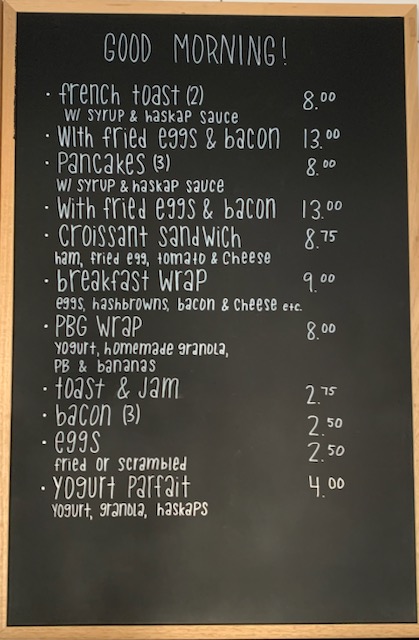 GOOD MORNING!
· french toast (2) 8.00
w/ syrup & haskap sauce
With fried eggs & bacon 13.00
· Pancakes (3) 8.00
w/ syrup & haskap sauce
· With fried eggs & bacon 13.00
· Croissant sandwich 8.75
ham, fried egg, tomato & cheese
· breakfast wrap 9.00
eggs, hashbrowns, bacon & cheese etc.
· PBG wrap 8.00
yogurt, homemade granola,
PB & bananas
· toast & jam 2.75
· bacon (3) 2.50
· eggs 2.50
fried or scrambled
· yogurt parfait 4.00
yogurt, granola, haskaps